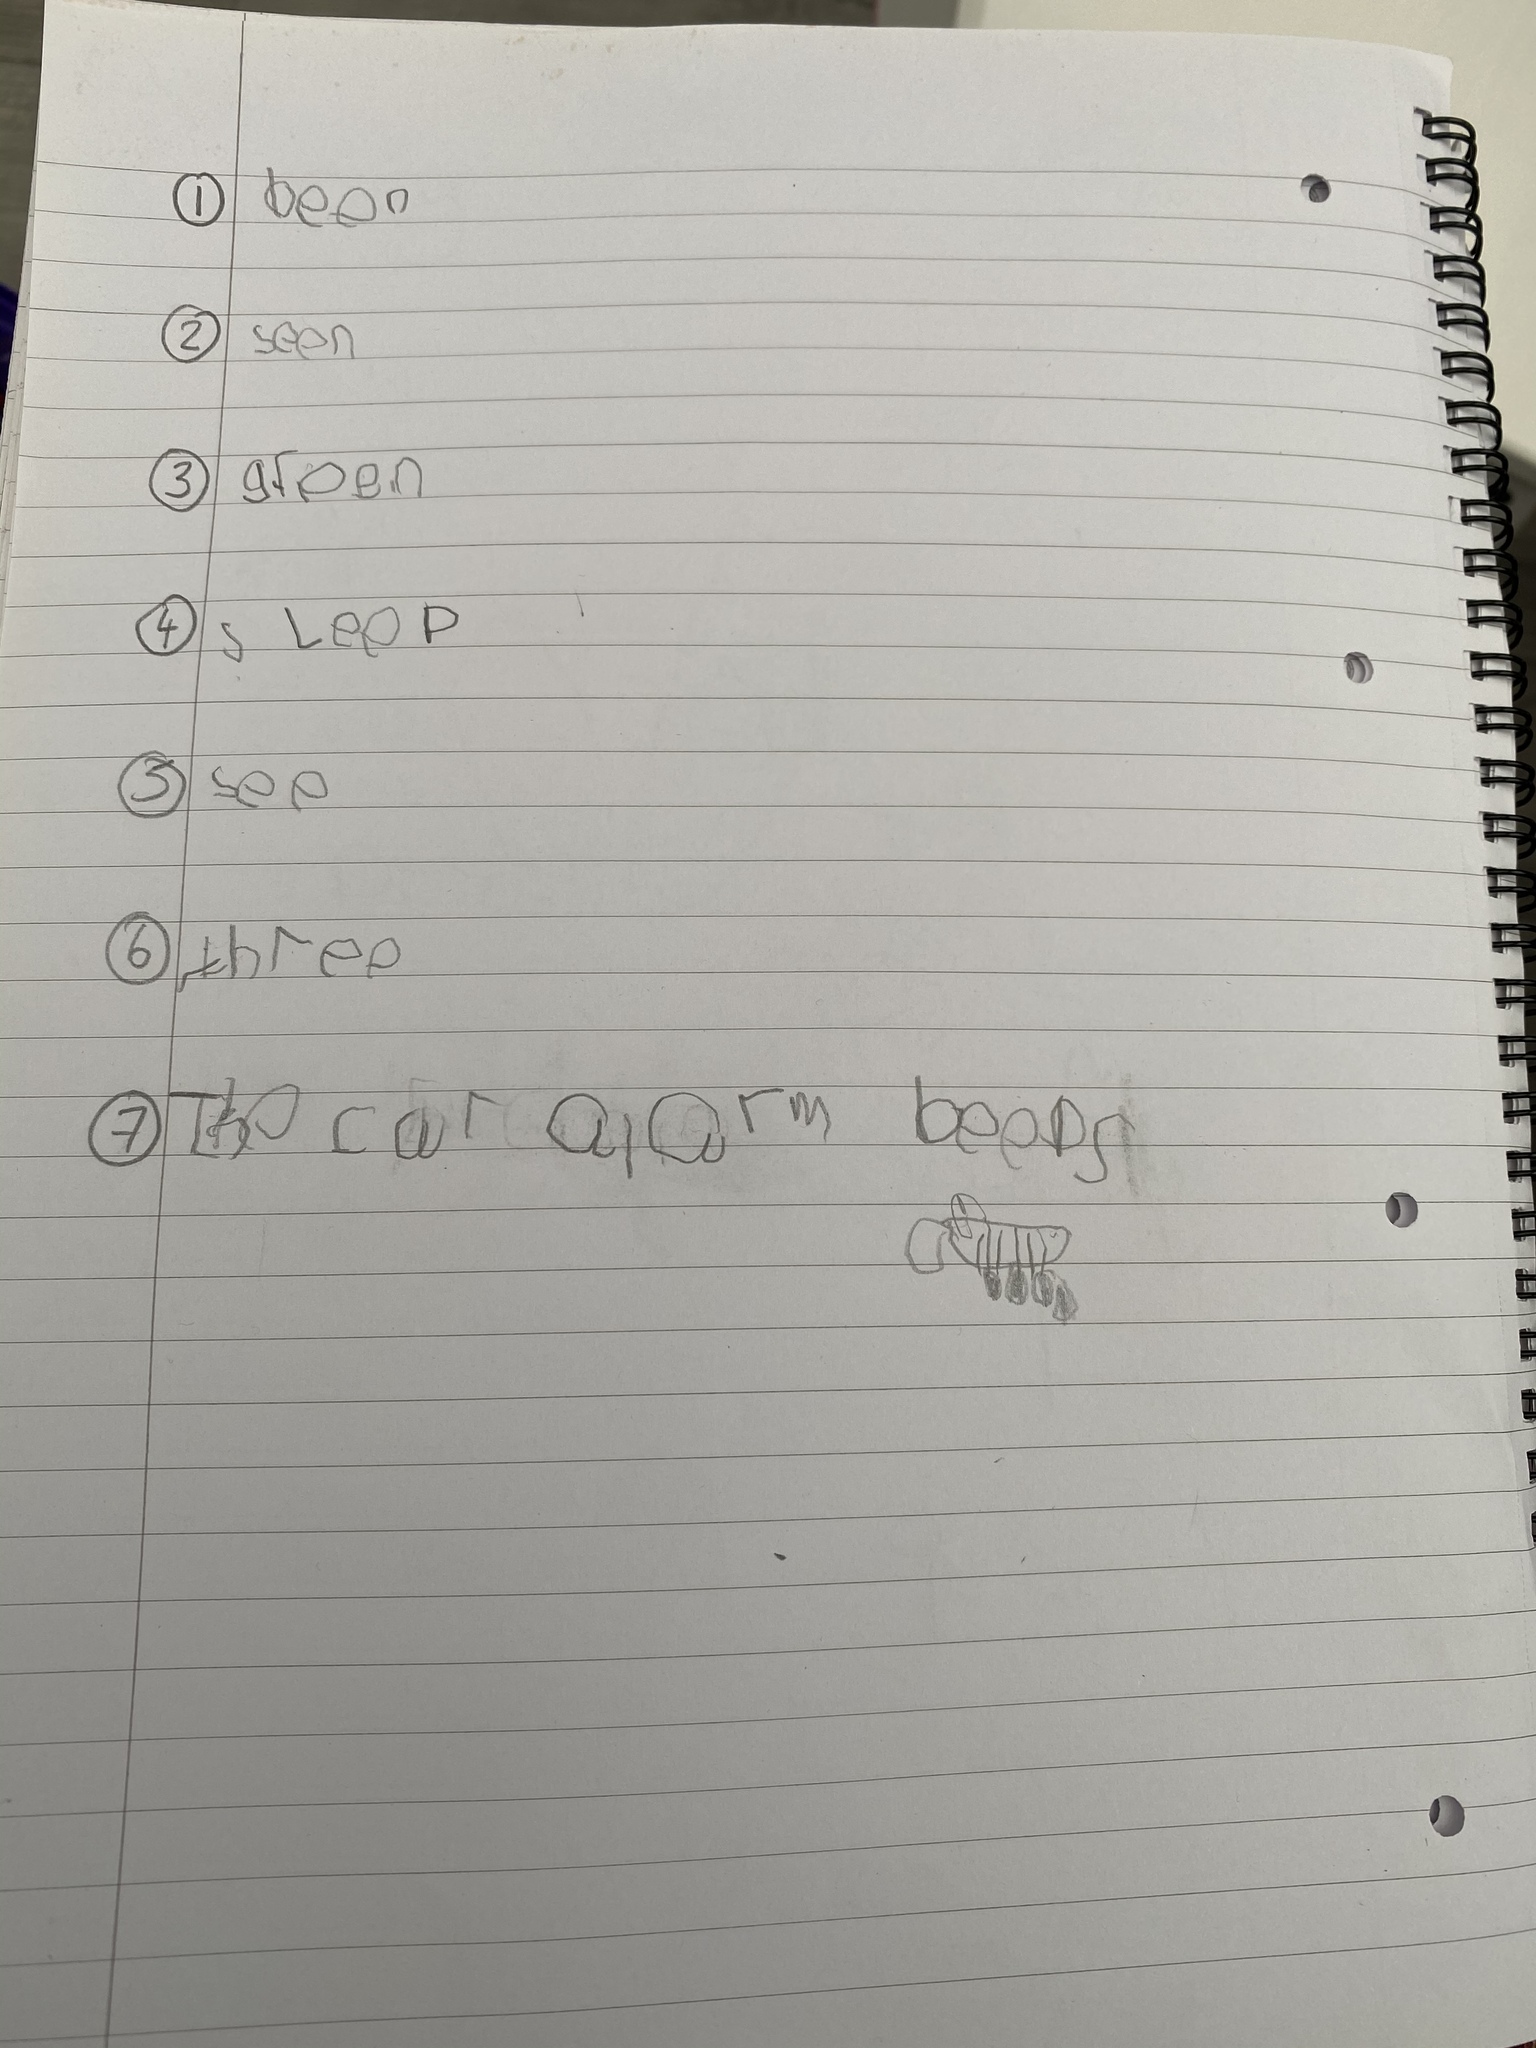 1 been
2 seen
3 green
4 sleep
5 see
6 three
7 The car alarm beeps